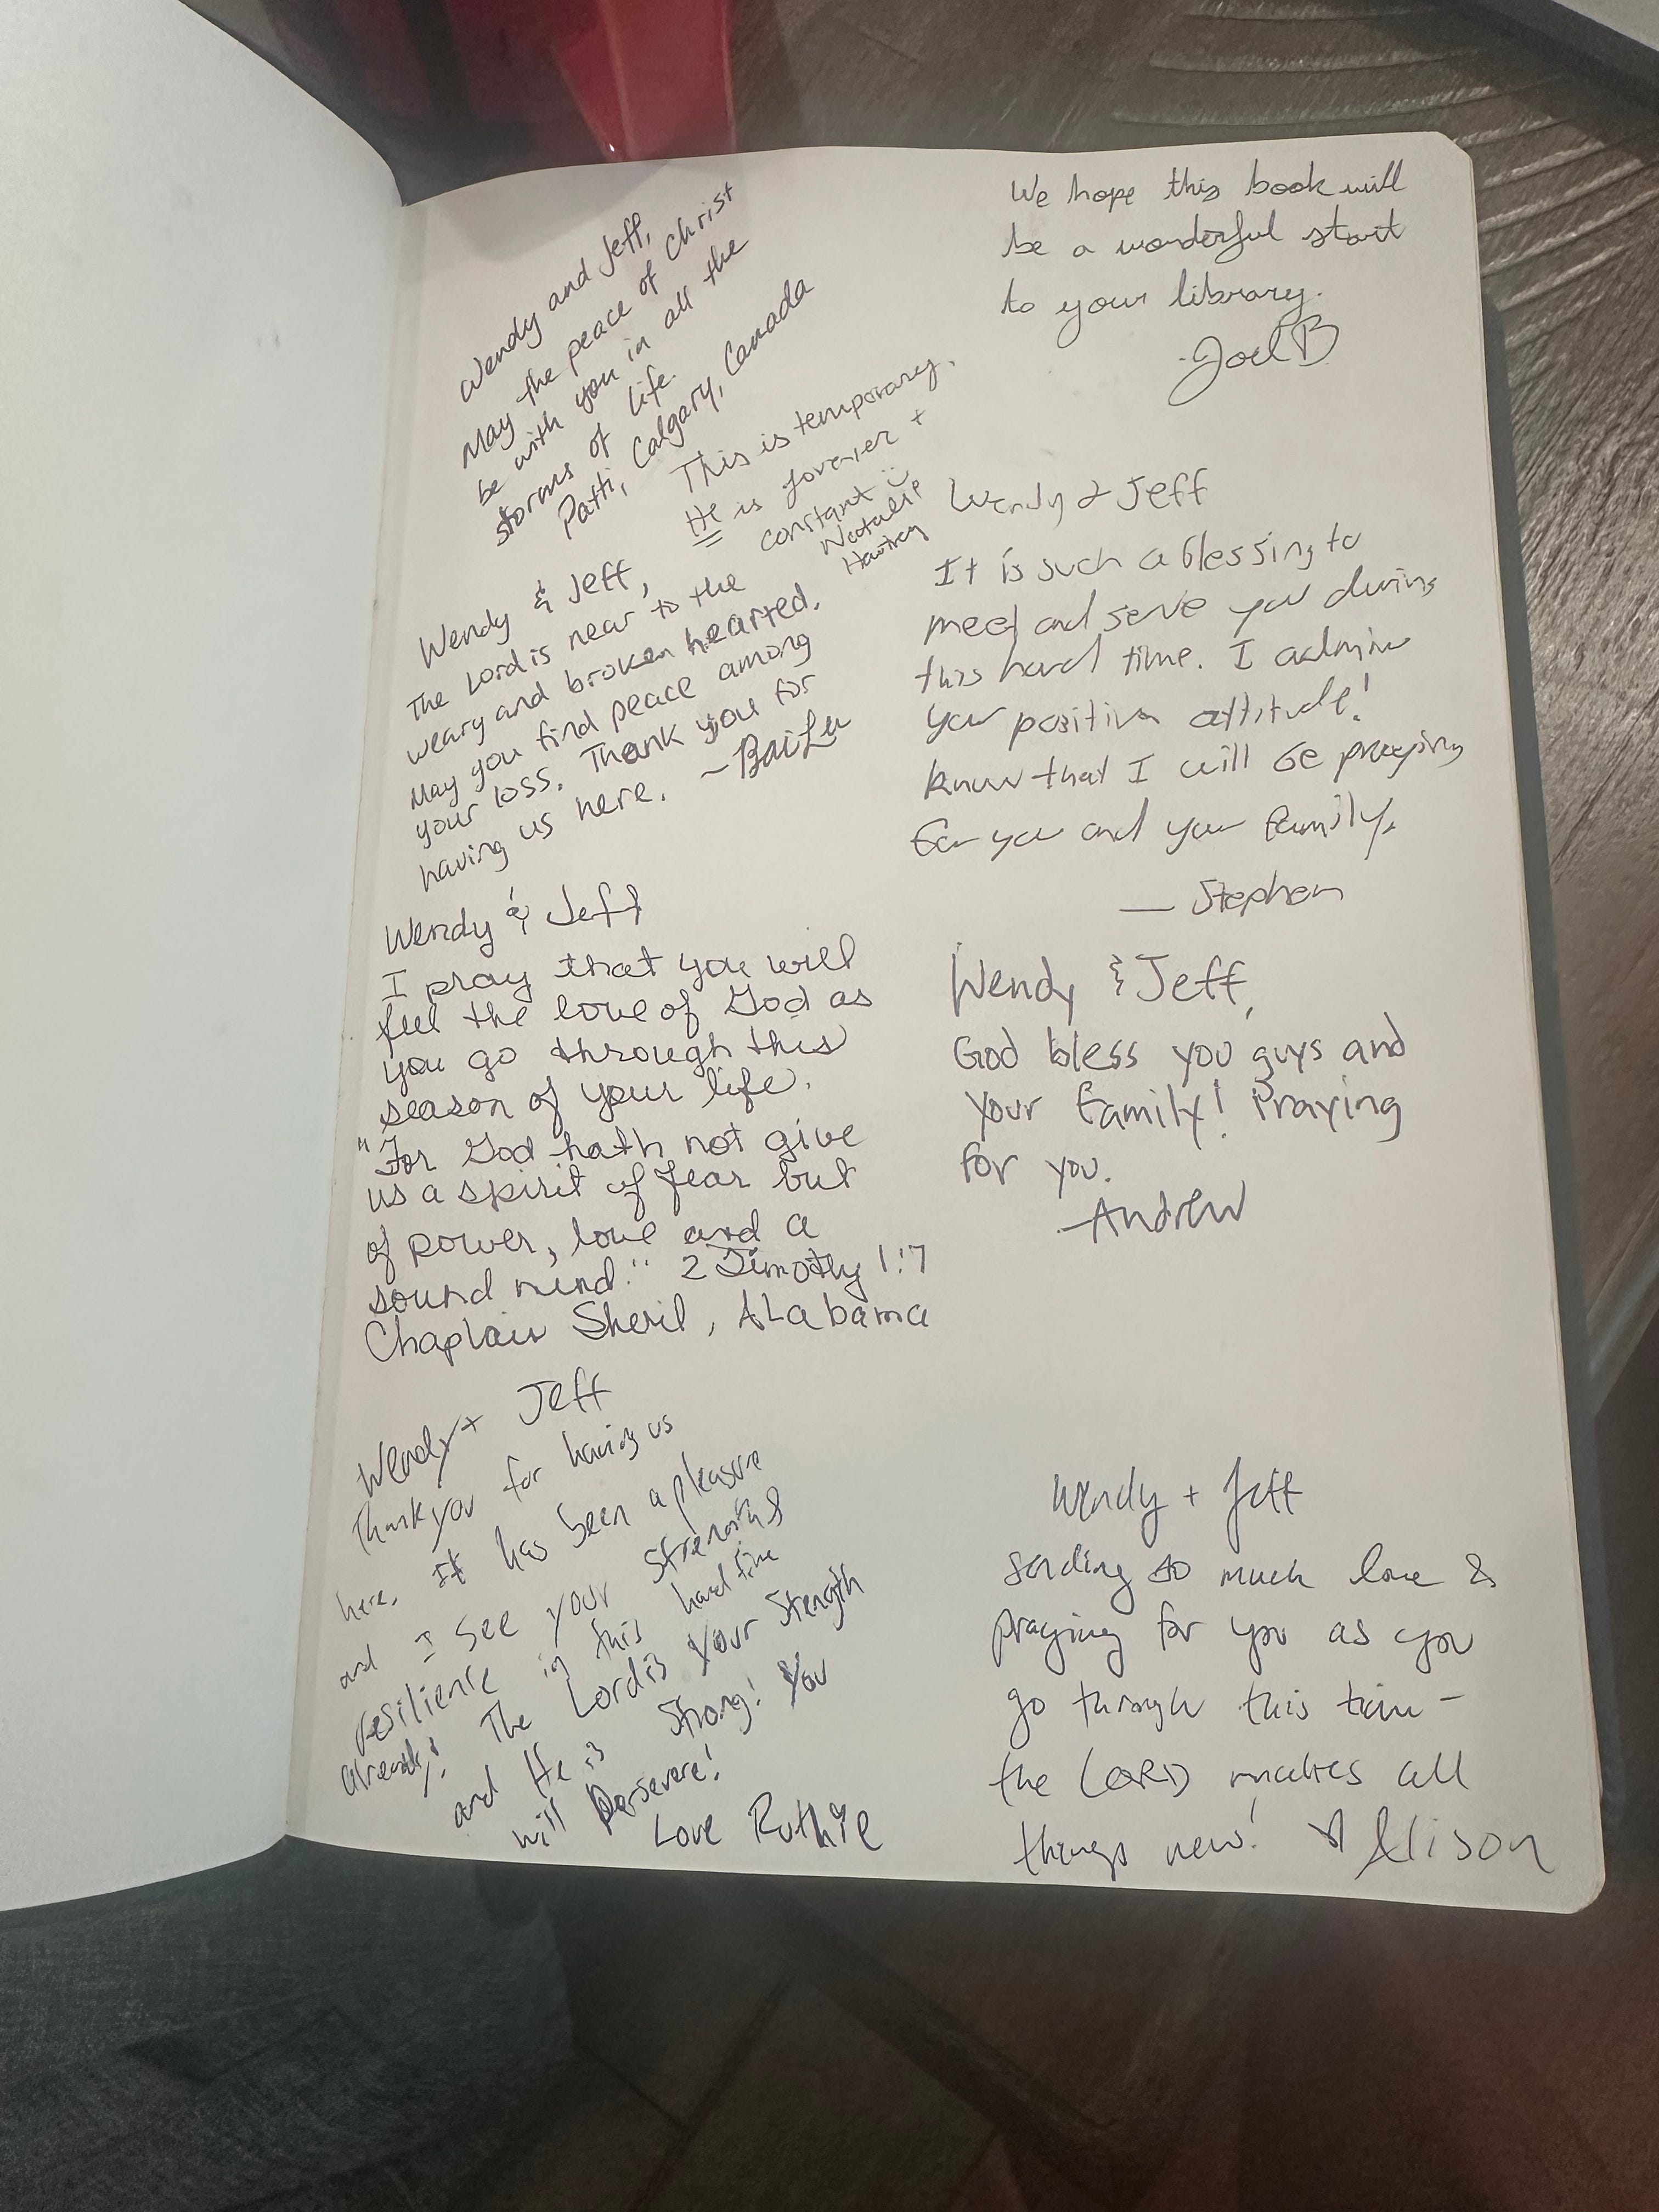 Wendy and Jeff,
May the peace of Christ
be with you in all the
storms of life.
Patti, Calgary, Canada
This is temporary.
He is forever +
constant
Natalie
We hope this book will
be a wonderful start
to your library.
-Joel B
Wendy & Jeff,
The Lord is near to the
weary and broken hearted.
May you find peace among
your loss. Thank you for
having us here. ~BaiLu
Wendy & Jeff
It is such a blessing to
meet and serve you during
this hard time. I admire
your positive attitude!
know that I will be praying
for you and your family.
— Stephen
Wendy & Jeff
I pray that you will
feel the love of God as
you go through this
season of your life.
"For God hath not give
us a spirit of fear but
of power, love and a
sound mind." 2 Timothy 1:7
Chaplain Sheril, ALabama
Wendy & Jeff,
God bless you guys and
your family! Praying
for you.
-Andrew
Wendy + Jeff
Thank you for having us
here. It has been a pleasure
and I see your strength &
resilience in this hard time
already! The Lord is your strength
and He is strong! You
will persevere!
Love Ruthie
Wendy + Jeff
sending so much love &
praying for you as you
go through this time -
the LORD makes all
things new! ♡ Alison